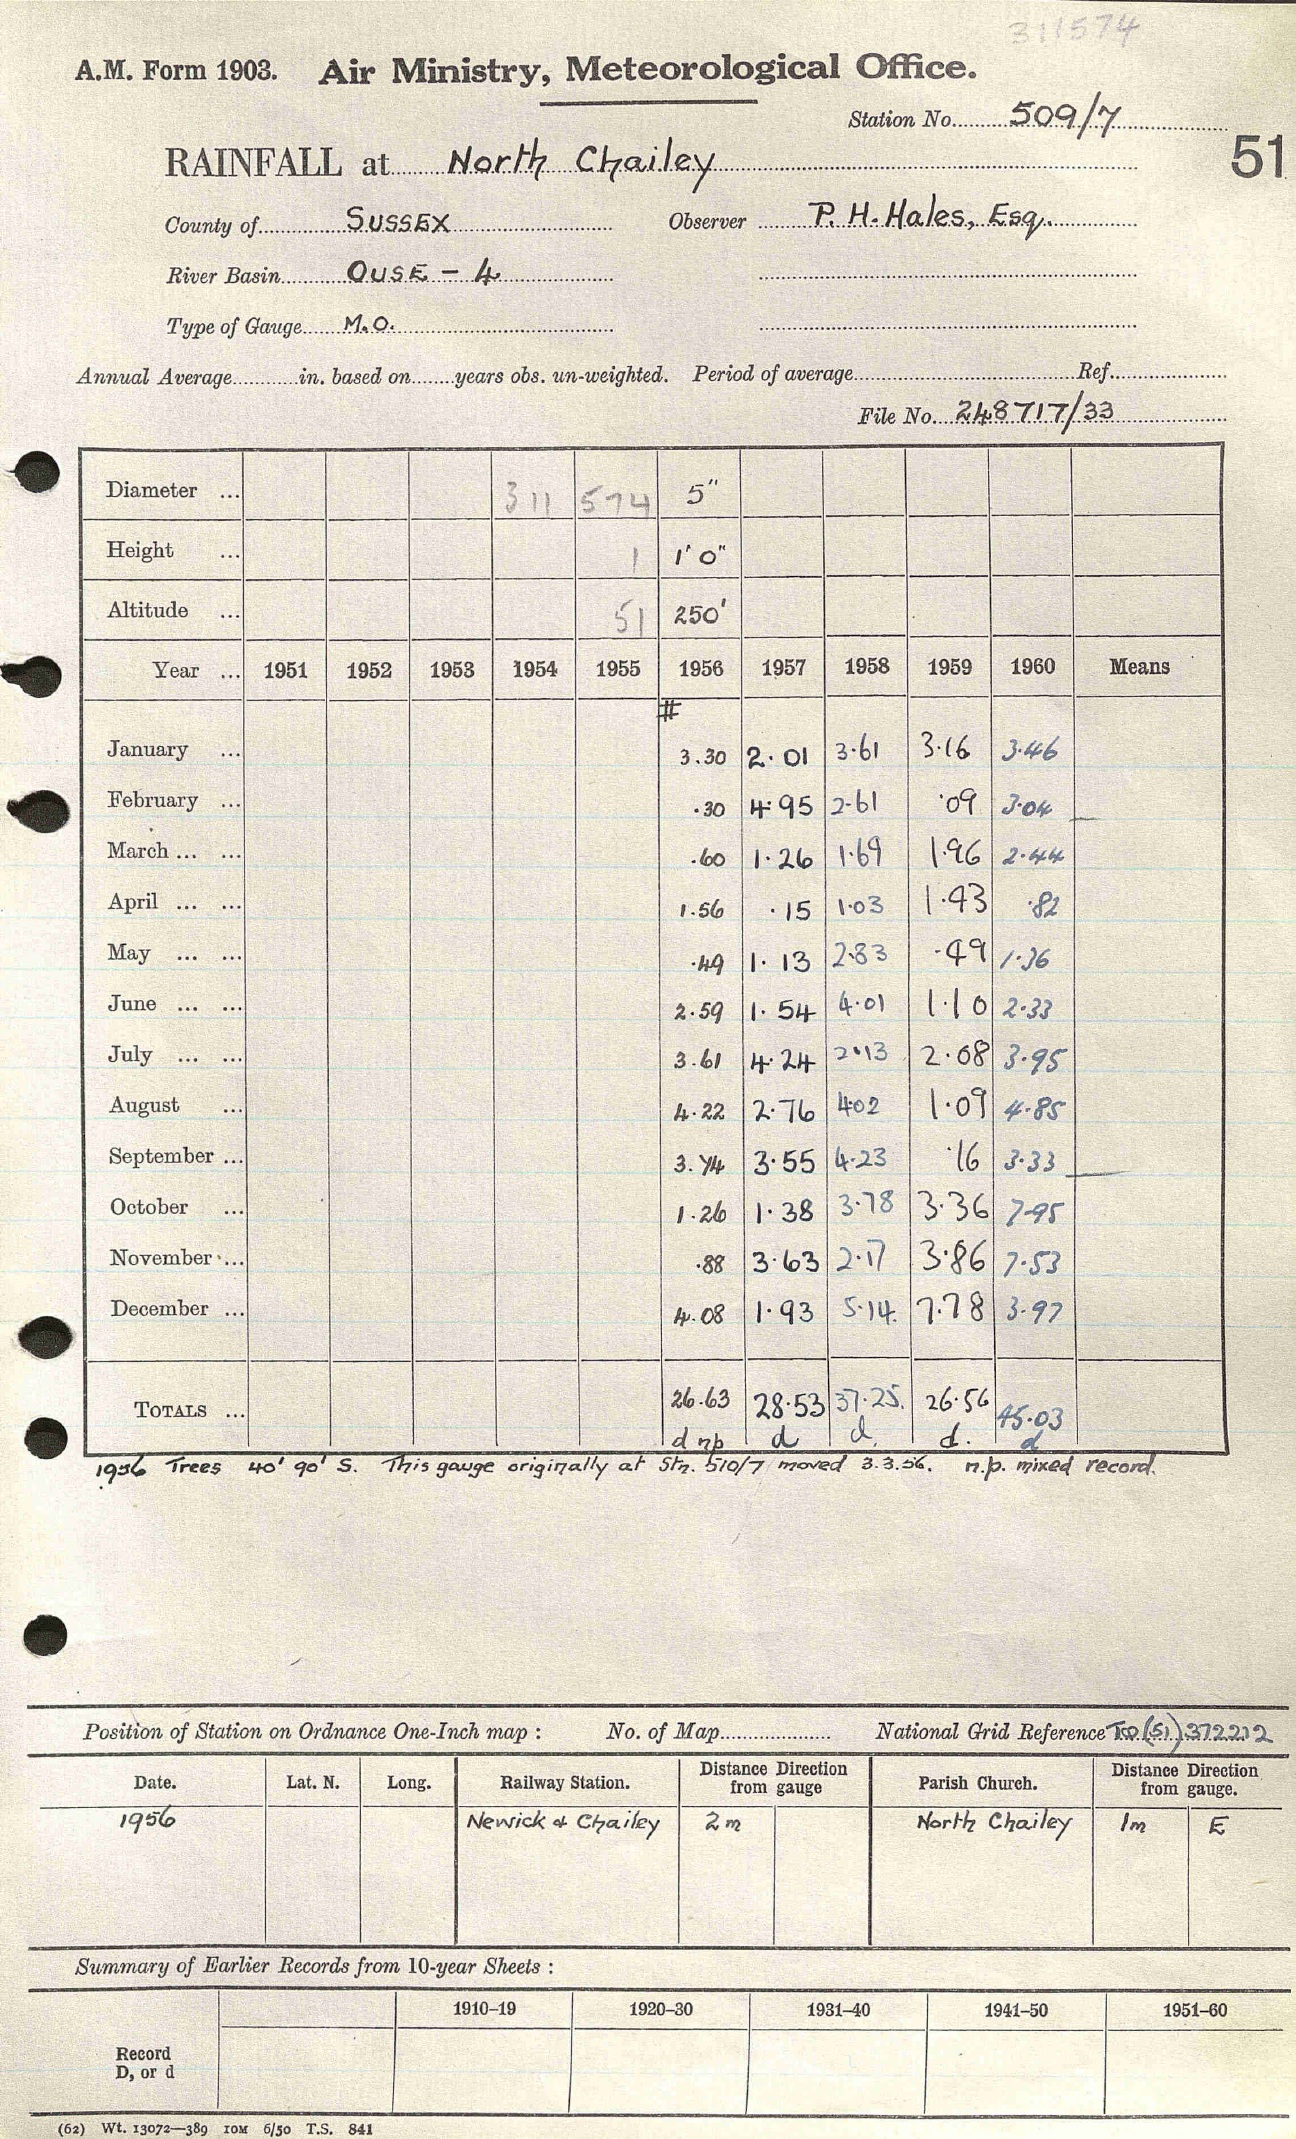 311574
A.M. Form 1903. Air Ministry, Meteorological Office.
Station No. 509/7
51
RAINFALL at North Chailey
County of SUSSEX Observer P. H. Hales, Esq.
River Basin OUSE - 4
Type of Gauge M.O.
Annual Average in. based on years obs. un-weighted. Period of average Ref.
File No. 248717/33
Diameter ... 311 574 5"
Height ... 1 1' 0"
Altitude ... 51 250'
Year ... 1951 1952 1953 1954 1955 1956 1957 1958 1959 1960 Means
#
January ... 3.30 2.01 3.61 3.16 3.46
February ... .30 4.95 2.61 .09 3.04
March ... ... .60 1.26 1.69 1.96 2.44
April ... ... 1.56 .15 1.03 1.43 .82
May ... ... .49 1.13 2.83 .49 1.36
June ... ... 2.59 1.54 4.01 1.10 2.33
July ... ... 3.61 4.24 2.13 2.08 3.95
August ... 4.22 2.76 402 1.09 4.85
September ... 3.74 3.55 4.23 .16 3.33
October ... 1.26 1.38 3.78 3.36 7.95
November ... .88 3.63 2.17 3.86 7.53
December ... 4.08 1.93 5.14. 7.78 3.97
TOTALS ... 26.63 28.53 37.25. 26.56 45.03
d np d d. d. d
1956 Trees 40' 90' S. This gauge originally at Stn. 510/7 moved 3.3.56. n.p. mixed record.
Position of Station on Ordnance One-Inch map : No. of Map National Grid Reference TQ (51) 372212
Date. Lat. N. Long. Railway Station. Distance Direction from gauge Parish Church. Distance Direction from gauge.
1956 Newick & Chailey 2m North Chailey 1m E
Summary of Earlier Records from 10-year Sheets :
1910–19 1920–30 1931–40 1941–50 1951–60
Record
D, or d
(62) Wt. 13072—389 10M 6/50 T.S. 841